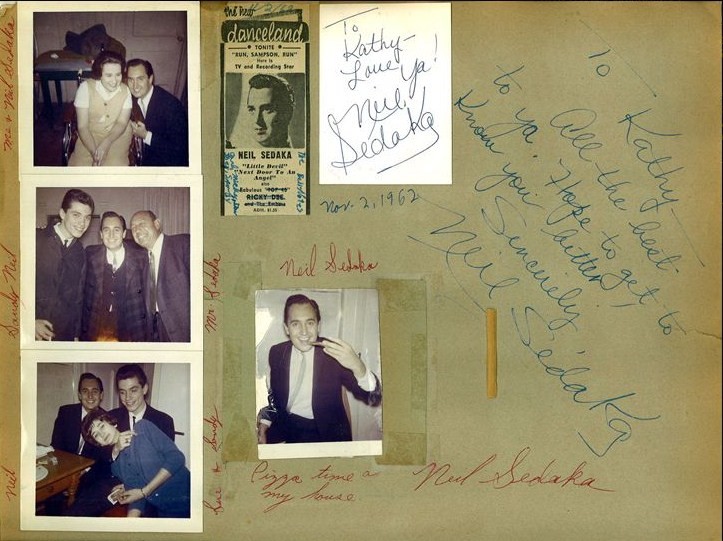 Me & Neil Sedaka
Sandy Neil
Mr. Sedaka
Neil
Sue & Sandy
the Beat
danceland
• TONITE •
"RUN, SAMPSON, RUN"
Here Is
TV and Recording Star
NEIL SEDAKA
"Little Devil"
"Next Door To An
Angel"
also
Fabulous "TOP 40"
RICKY DEE
and The Embers
ADM. $1.25
To
Kathy-
Love Ya!
Neil
Sedaka
Nov. 2, 1962
To Kathy-
All the best
to ya! Hope to get to
know you better,
Sincerely,
Neil Sedaka
Neil Sedaka
Pizza time @
my house
Neil Sedaka